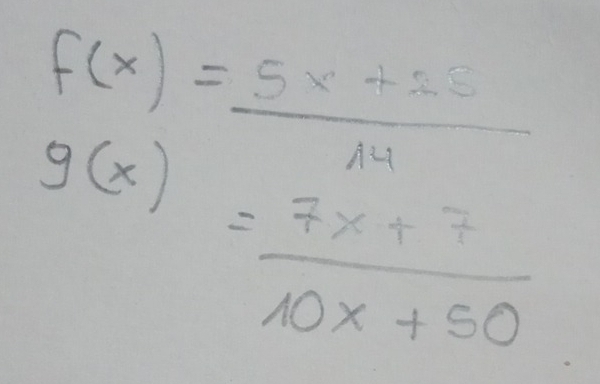 f(x) = 5x + 25
14
g(x)
= 7x + 7
10x + 50